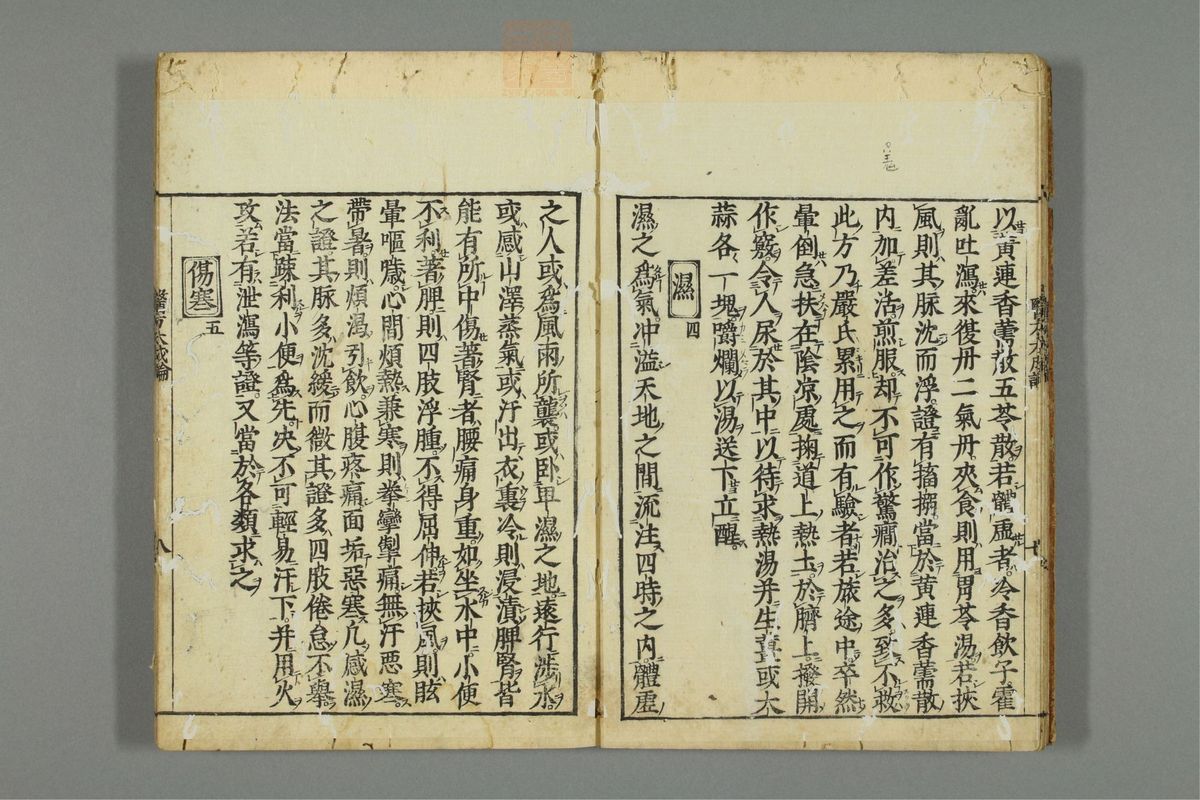 以黃連香薷散五苓散若體虛者冷香飲子霍
亂吐瀉來復丹二氣丹夾食則用胃苓湯若挾
風則其脉沈而浮證有搐搦當於黃連香薷散
内加羌活煎服却不可作驚癇治之多致不救
此方乃嚴氏累用之而有驗者若旅途中卒然
暈倒急扶在陰凉處掬道上熱土於臍上撥開
作竅令人尿於其中以待求熱湯并生薑或大
蒜各一塊嚼爛以湯送下立醒
濕 四
濕之爲氣冲溢天地之間流注四時之内體虛
之人或爲風雨所襲或卧卑濕之地遠行涉水
或感山澤蒸氣或汗出衣裏冷則浸漬脾腎皆
能有所中傷著腎者腰痛身重如坐水中小便
不利著脾則四肢浮腫不得屈伸若挾風則眩
暈嘔噦心間煩熱兼寒則拳攣掣痛無汗惡寒
帶暑則煩渴引飲心腹疼痛面垢惡寒凡感濕
之證其脉多沈緩而微其證多四肢倦怠不舉
法當踈利小便爲先决不可輕易汗下并用火
攻若有泄瀉等證又當於各類求之
傷寒 五
八